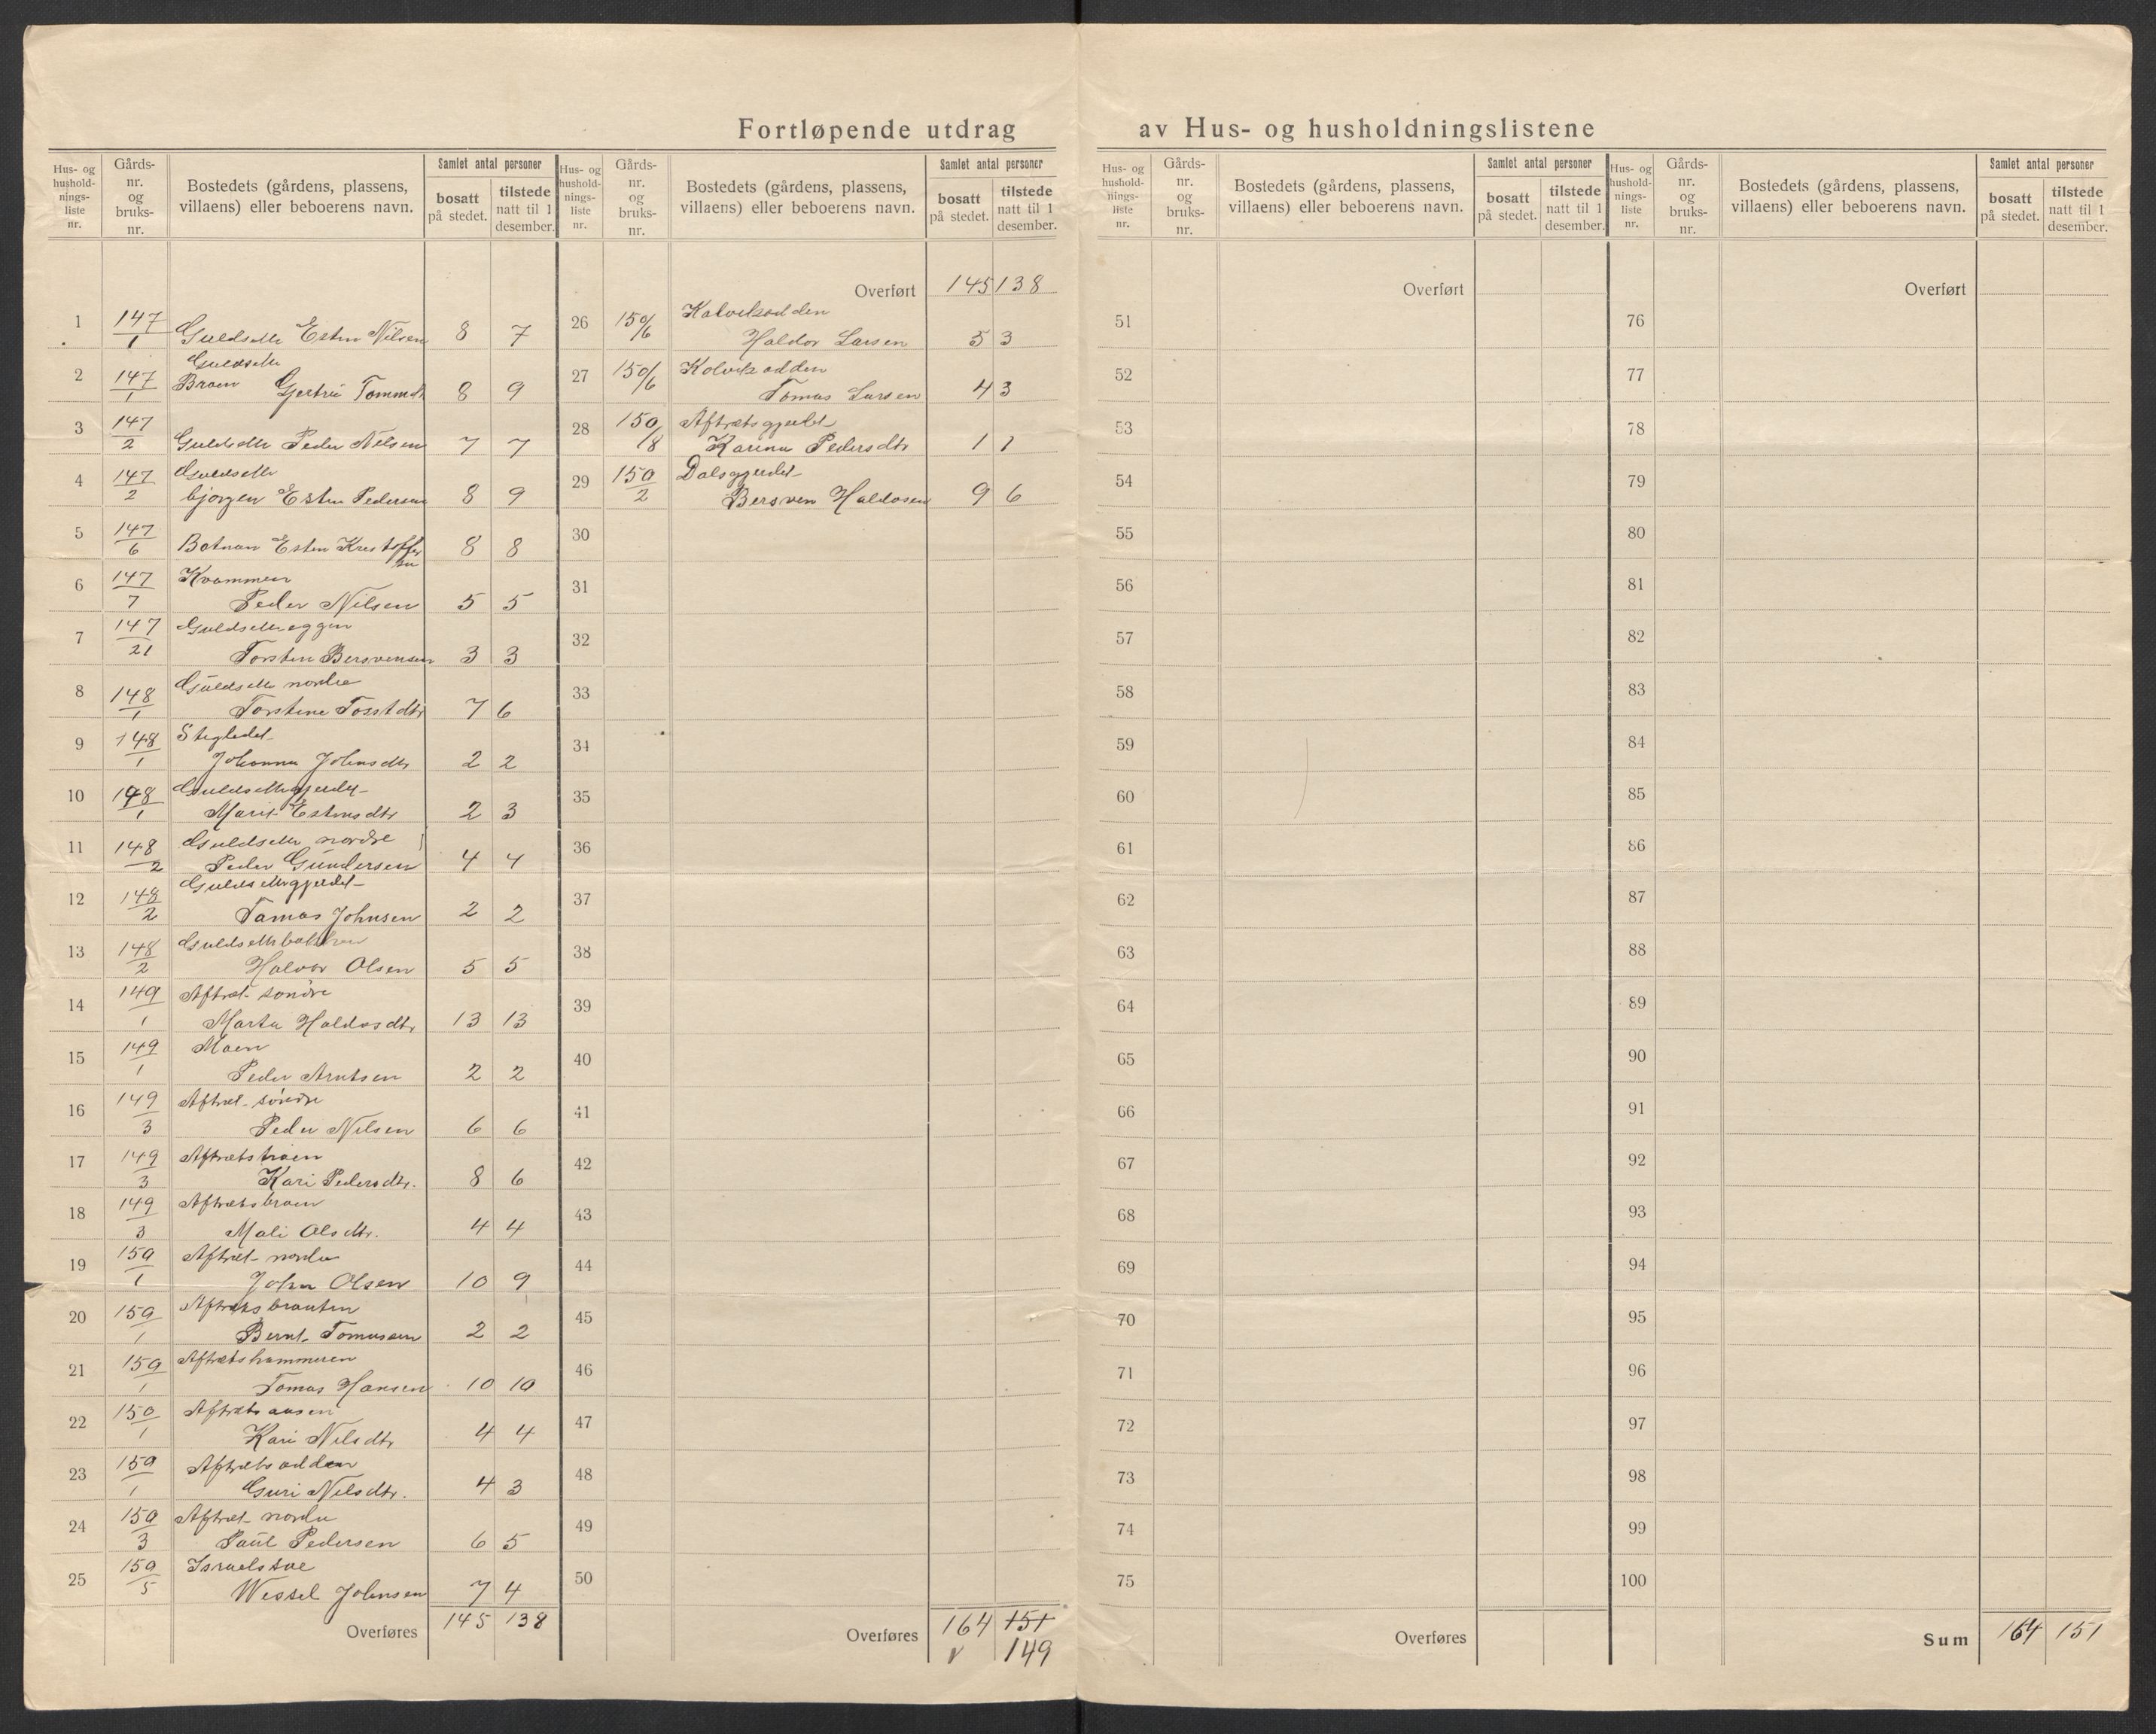 Fortløpende utdrag av Hus- og husholdningslistene
Hus- og husholdnings-liste nr. Gårds-nr. og bruks-nr. Bostedets (gårdens, plassens, villaens) eller beboerens navn. Samlet antal personer bosatt på stedet. tilstede natt til 1 desember.
Hus- og husholdnings-liste nr. Gårds-nr. og bruks-nr. Bostedets (gårdens, plassens, villaens) eller beboerens navn. Samlet antal personer bosatt på stedet. tilstede natt til 1 desember.
Hus- og husholdnings-liste nr. Gårds-nr. og bruks-nr. Bostedets (gårdens, plassens, villaens) eller beboerens navn. Samlet antal personer bosatt på stedet. tilstede natt til 1 desember.
Hus- og husholdnings-liste nr. Gårds-nr. og bruks-nr. Bostedets (gårdens, plassens, villaens) eller beboerens navn. Samlet antal personer bosatt på stedet. tilstede natt til 1 desember.
1 147/1 Guldsette Esten Nilsen 8 7
2 147/1 Guldsette
Braen Gjertru 8 9
3 147/2 Guldsette Peder Nilsen 7 7
4 147/2 Guldsette
bjørgen Esten Pedersen 8 9
5 147/6 Botnan Esten Krestoffersen 8 8
6 147/7 Kvammen
Peder Nilsen 5 5
7 147/21 Guldsetteggen
Torsten Bersvensen 3 3
8 148/1 Guldsette nordre
Torstine 7 6
9 148/1
Johanna Johnsdtr 2 2
10 148/1 Guldsettegjerdet
Marit Estensdtr 2 3
11 148/2 Guldsette nordre
Peder Gundersen 4 4
12 148/2 Guldsettegjerdet
Tomas Johnsen 2 2
13 148/2 Guldsettebakken
Halvor Olsen 5 5
14 149/1 Aftret søndre
Marta Haldosdtr. 13 13
15 149/1 Moen
Peder Arntsen 2 2
16 149/3 Aftret søndre
Peder Nilsen 6 6
17 149/3
Kari Pedersdtr. 8 6
18 149/3 Aftretsbraen
Mali Olsdtr. 4 4
19 150/1 Aftret nordre
John Olsen 10 9
20 150/1 Aftretsbrauten
Bernt Tomasen 2 2
21 150/1 Aftretshammeren
Tomas Hansen 10 10
22 150/1 Aftretsaasen
Kari Nilsdtr 4 4
23 150/1 Aftretsodden
Guri Nilsdtr. 4 3
24 150/3 Aftret nordre
Paul Pedersen 6 5
25 150/5
Wessel Johnsen 7 4
Overføres 145 138
Overført 145 138
26 150/6 Kalviksodden
Haldor Larsen 5 3
27 150/6 Kolviksodden
Tomas Larsen 4 3
28 150/8 Aftretsgjerdet
Karina Pedersdtr 1 1
29 150/2 Dalsgjerdet
Bersven Haldosen 9 6
30
31
32
33
34
35
36
37
38
39
40
41
42
43
44
45
46
47
48
49
50
Overføres 164 151
149
Overført
51
52
53
54
55
56
57
58
59
60
61
62
63
64
65
66
67
68
69
70
71
72
73
74
75
Overføres
Overført
76
77
78
79
80
81
82
83
84
85
86
87
88
89
90
91
92
93
94
95
96
97
98
99
100
Sum 164 151